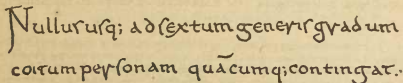 Nullurusq; adsextum generis gradum
coitum personam quācumq; contingat.